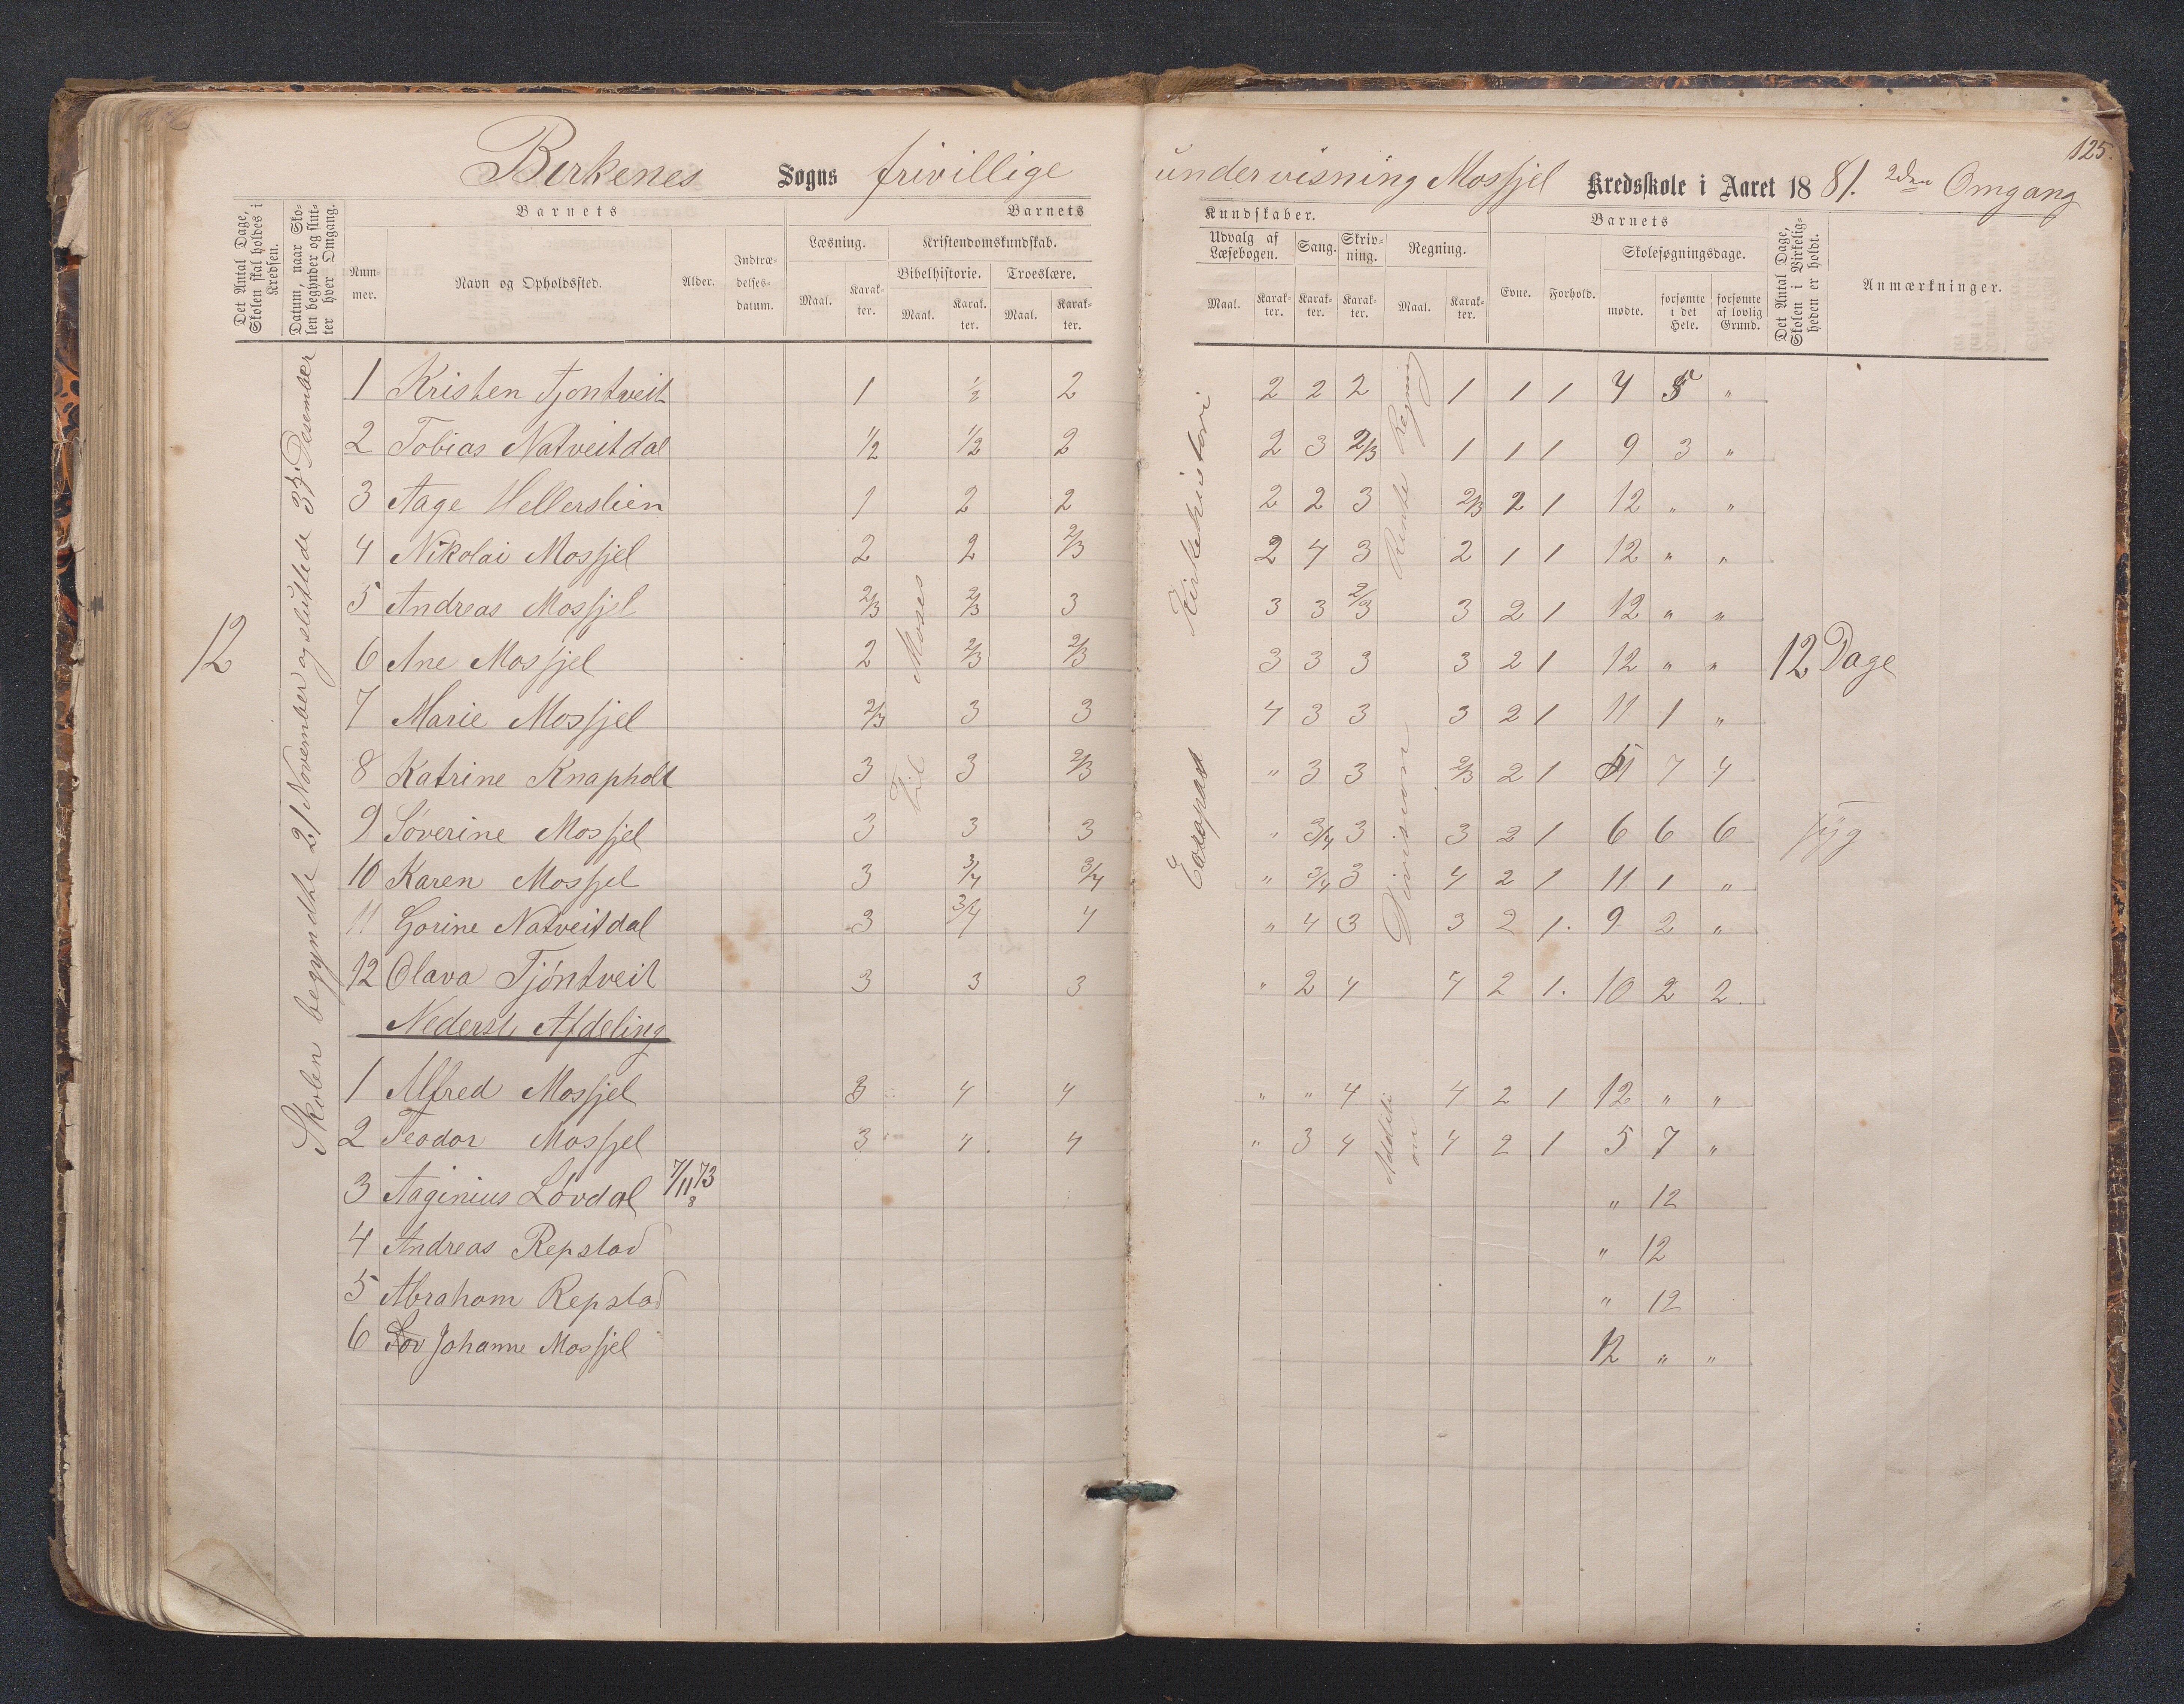 125.
Birkenes Sogns frivillige undervisning Mosfjel Kredsskole i Aaret 1881. 2den Omgang
Det Antal Dage, Skolen skal holdes i Kredsen.
Datum, naar Skolen begynder og slutter hver Omgang.
Barnets
Nummer.
Navn og Opholdssted.
Alder.
Indtrædelsesdatum.
Barnets
Læsning.
Maal.
Karakter.
Kristendomskundskab.
Bibelhistorie.
Maal.
Karakter.
Troeslære.
Maal.
Karakter.
Kundskaber.
Udvalg af Læsebogen.
Maal.
Karakter.
Sang.
Karakter.
Skrivning.
Karakter.
Regning.
Maal.
Karakter.
Barnets
Evne.
Forhold.
Skolesøgningsdage.
mødte.
forsømte i det Hele.
forsømte af lovlig Grund.
Det Antal Dage, Skolen i Virkeligheden er holdt.
Anmærkninger.
12
Skolen begyndte 21 November og sluttede 3die Desember
Til Moses
Kirkehistori
Rente Regning
Division
Addition
1 Kristen Tjontveit 1 1/2 2 2 2 2 1 1 1 4 5 "
2 Tobias Natveitdal 1/2 1/2 2 2 3 2/3 1 1 1 9 3 "
3 Aage Hellerslien 1 2 2 2 2 3 2/3 2 1 12 " "
4 Nikolai Mosfjel 2 2 2/3 2 4 3 2 1 1 12 " "
5 Andreas Mosfjel 2/3 2/3 3 3 3 2/3 3 2 1 12 " "
6 Ane Mosfjel 2 2/3 2/3 3 3 3 3 2 1 12 " " 12 Dage
7 Marie Mosfjel 2/3 3 3 4 3 3 3 2 1 11 1 "
8 Katrine Knapholt 3 3 2/3 " 3 3 2/3 2 1 7 4
9 Søverine Mosfjel 3 3 3 " 3/4 3 3 2 1 6 6 6 syg
10 Karen Mosfjel 3 3/4 3/4 " 3/4 3 4 2 1 11 1 "
11 Gorine Natveitdal 3 3/4 4 " 4 3 3 2 1. 9 2 "
12 Olava Tjöntveit 3 3 3 " 2 4 4 2 1. 10 2 2.
Nederst Afdeling
1 Alfred Mosfjel 3 4 4 " " 4 4 2 1 12 " "
2 Teodor Mosfjel 3 4 4 " 3 4 4 2 1 5 7 "
3 Aaginius Løvdal 7/11 73 8 " 12
4 Andreas Repstad " 12
5 Abraham Repstad " 12
6 Johanne Mosfjel 12 " "